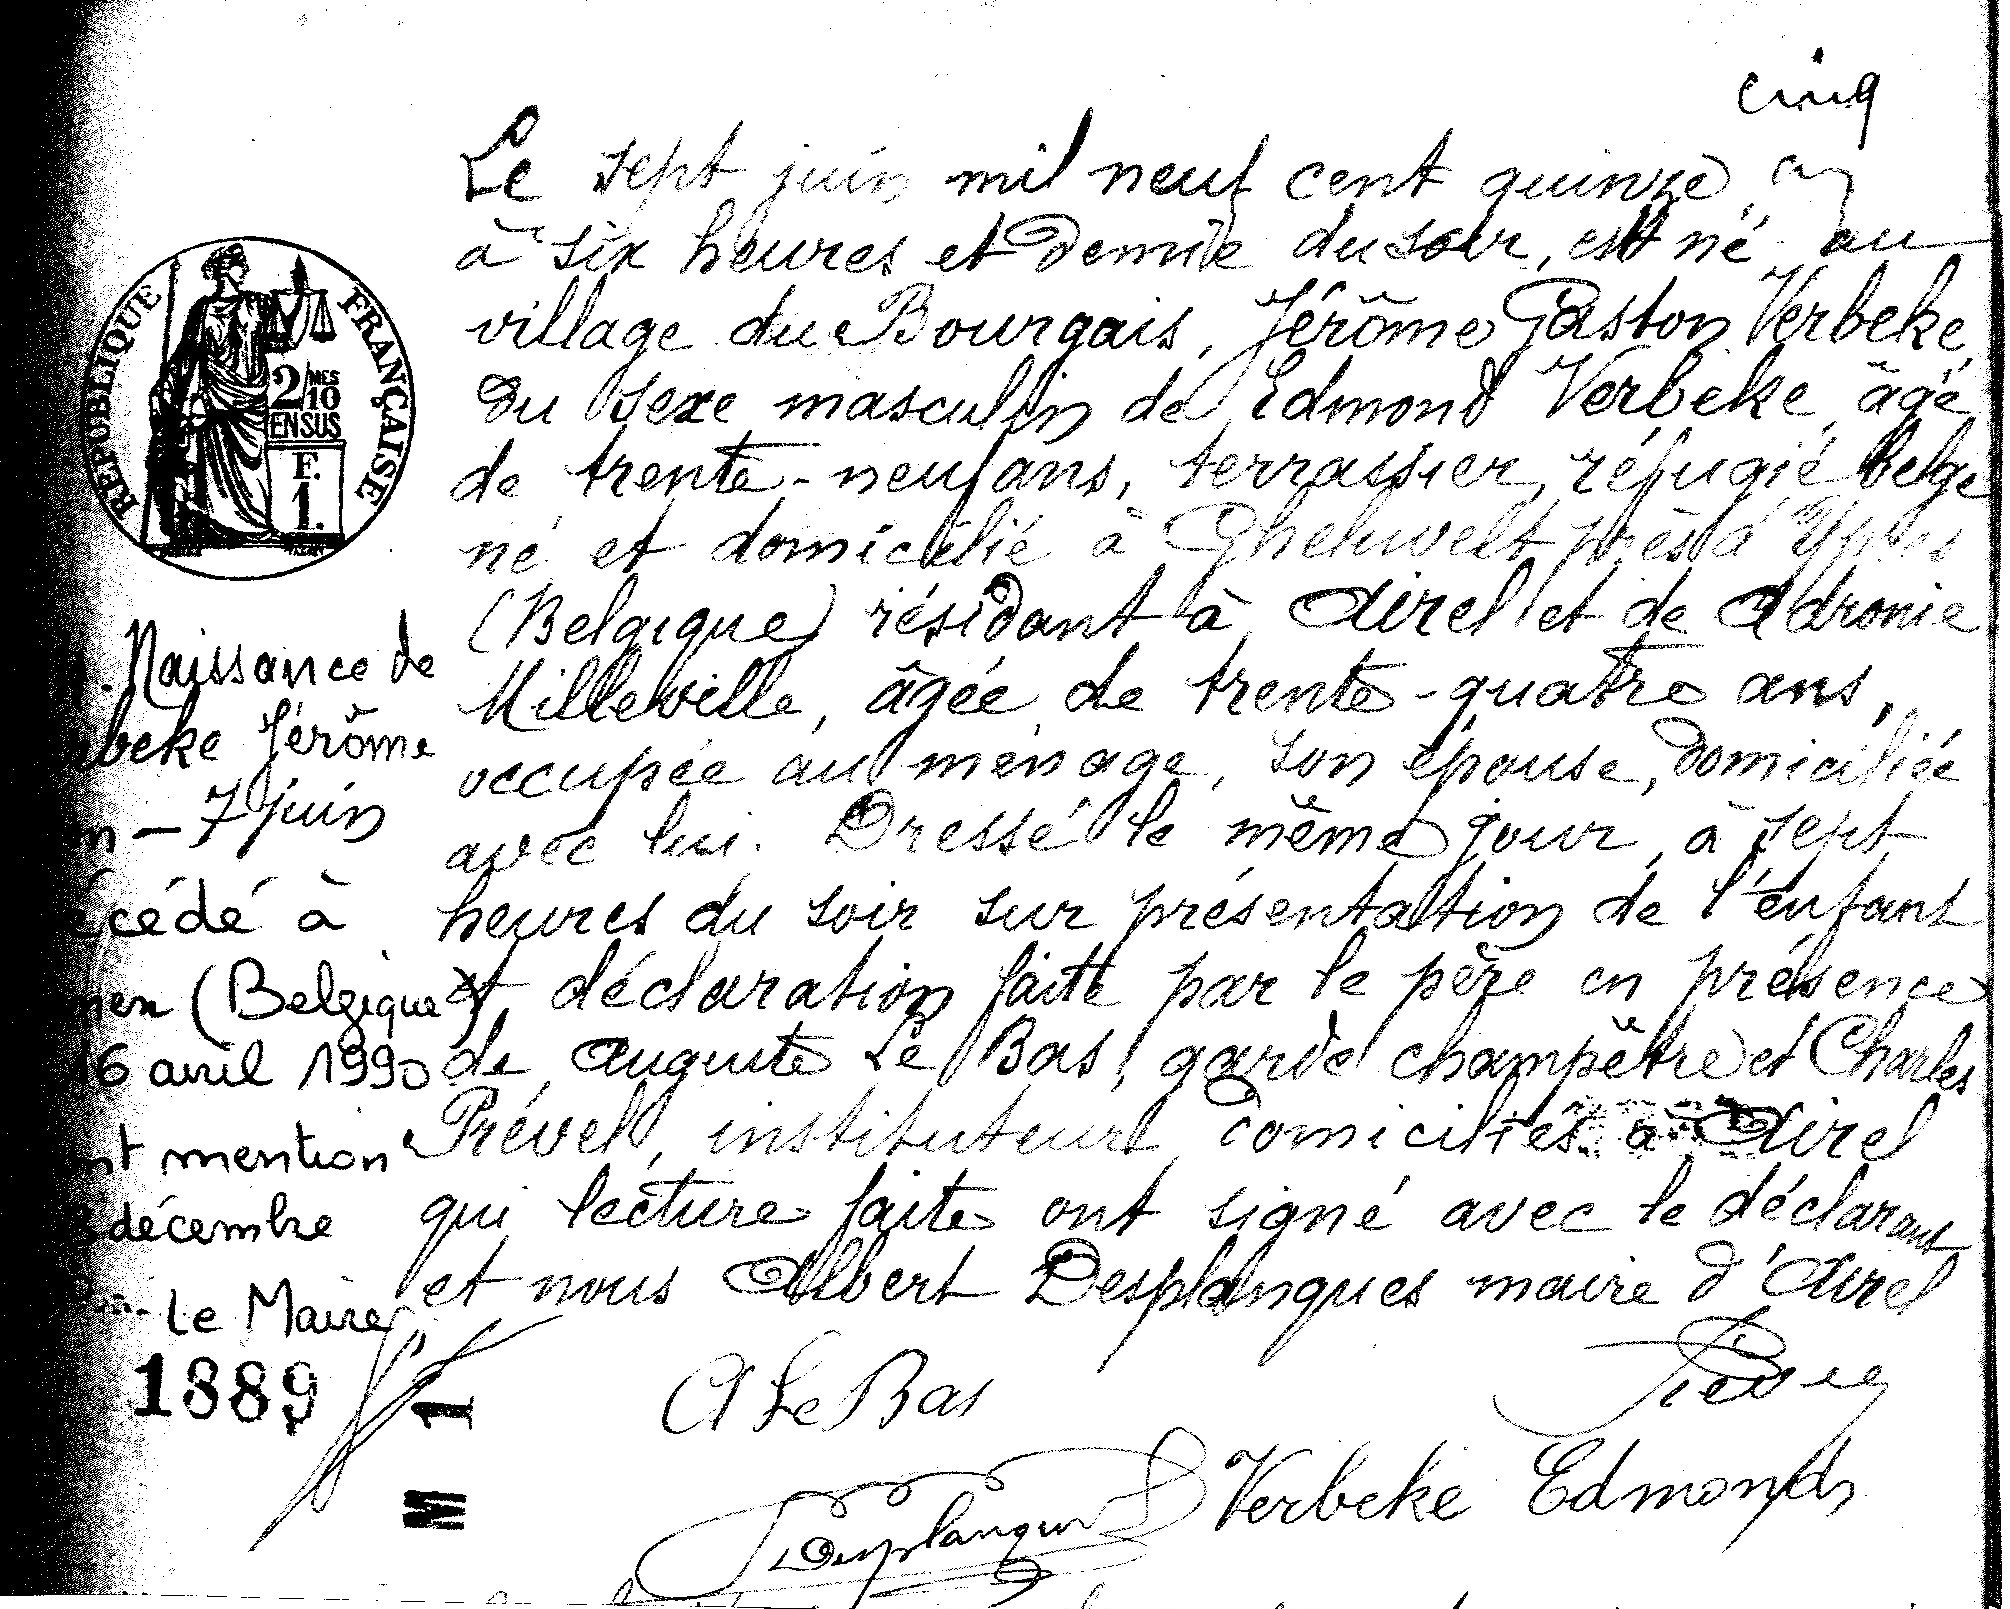 cinq
Le sept juin mil neuf cent quinze
à six heures et demie du soir, est né au
village du Bourgais, Jérôme Gaston Verbeke,
du sexe masculin de Edmond Verbeke, âgé
de trente-neuf ans, terrassier, réfugié belge
né et domicilié à Gheluvelt près à Ypres
(Belgique) résidant à Airel et de Adronie
Milleville, âgée de trente-quatre ans,
occupée au ménage, son épouse, domiciliée
avec lui. Dressé le même jour, à sept
heures du soir sur présentation de l'enfant
et déclaration faite par le père en présence
de Auguste Le Bas, garde champêtre et Charles
Prével, instituteur, domiciliés à Airel
qui lecture faite ont signé avec le déclarant
et nous Albert Desplanques maire d'Airel
A Le Bas
Prével
Desplanques
Verbeke Edmond
RÉPUBLIQUE FRANÇAISE
2/MES
10
EN SUS
F.
1.
Naissance de
beke Jérôme
n - 7 juin
écédé à
nen (Belgique)
6 avril 1990
nt mention
décembre
Le Maire
1889
M 1